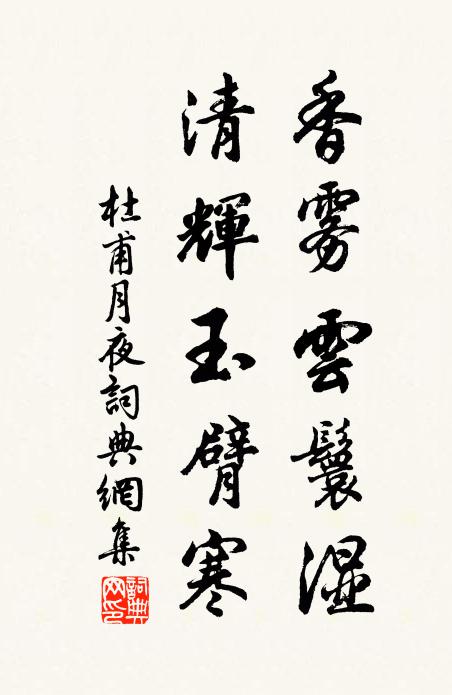 香雾雲鬟湿
清輝玉臂寒
杜甫月夜詞典網集
詞典網印